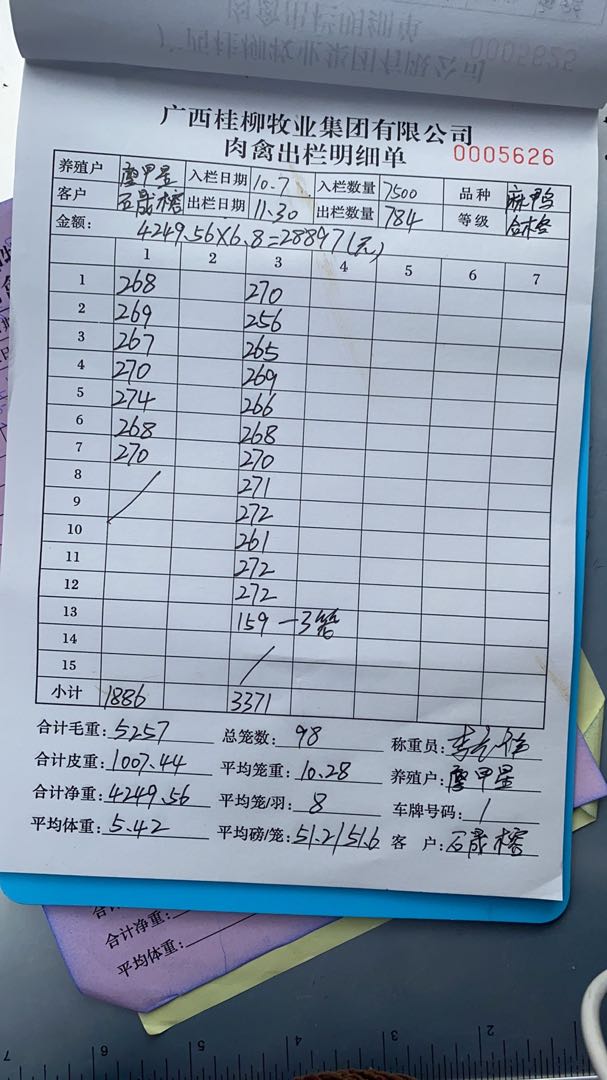 0005625
广西桂柳牧业集团有限公司
肉禽出栏明细单 0005626
养殖户 廖甲星 入栏日期 10.7 入栏数量 7500 品种 麻鸭
客户 石晟榕 出栏日期 11.30 出栏数量 784 等级 合格
金额: 4249.56×6.8=28897(元)
1 2 3 4 5 6 7
1 268 270
2 269 256
3 267 265
4 270 269
5 274 266
6 268 268
7 270 270
8 271
9 272
10 261
11 272
12 272
13 159 — 3笼
14
15
小计 1886 3371
合计毛重: 5257 总笼数: 98 称重员:
合计皮重: 1007.44 平均笼重: 10.28 养殖户: 廖甲星
合计净重: 4249.56 平均笼/羽: 8 车牌号码: 1
平均体重: 5.42 平均磅/笼: 51.2/51.6 客 户: 石晟榕
合计净重:
平均体重:
7 6 5 4 3 2